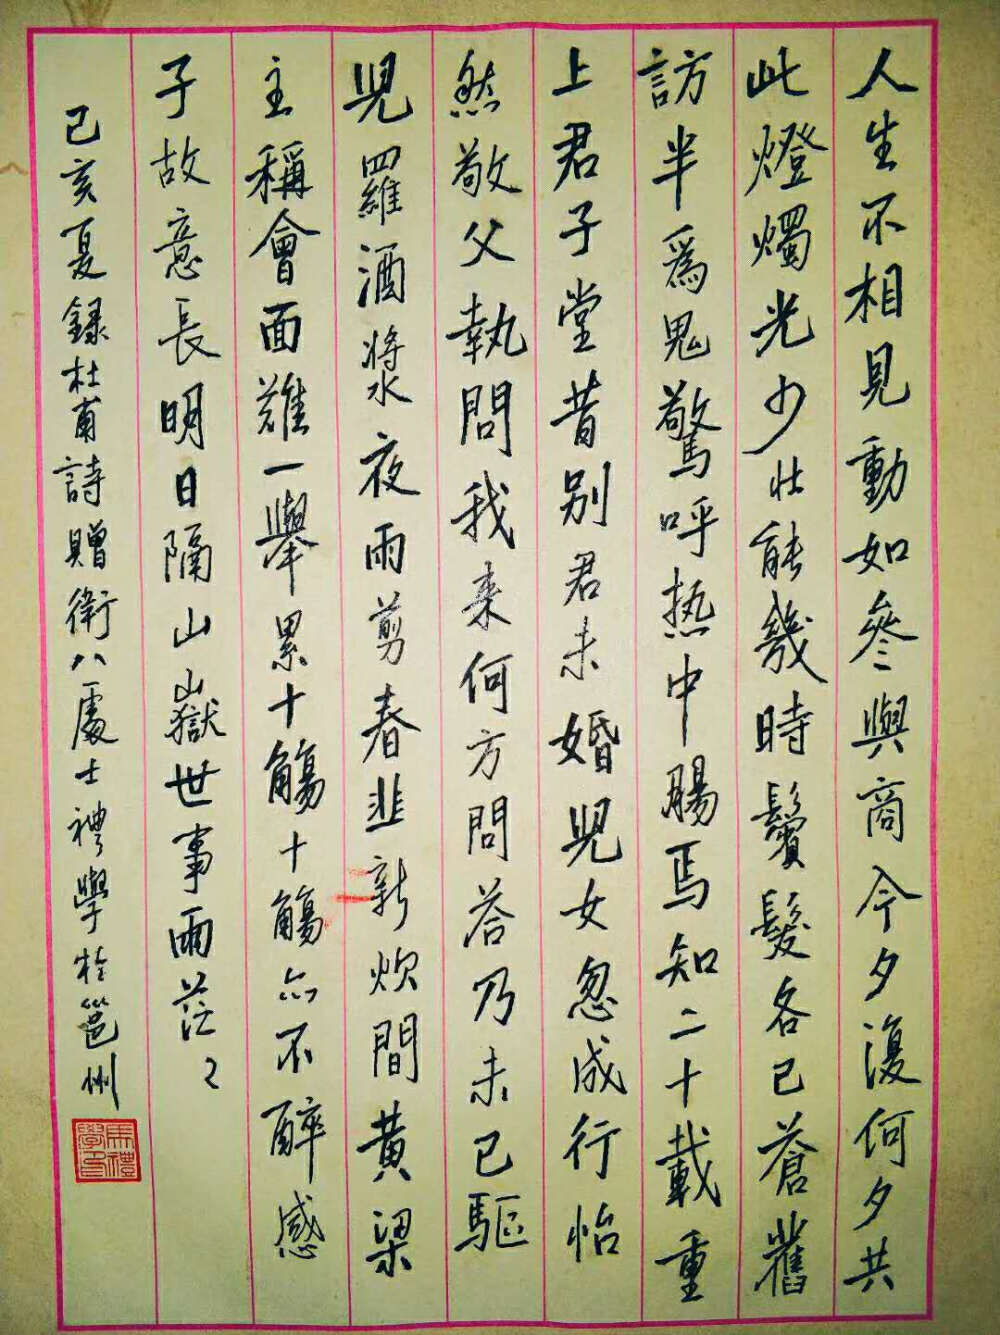 人生不相見動如參與商今夕復何夕共
此燈燭光少壯能幾時鬢髮各已蒼舊
訪半為鬼驚呼热中腸焉知二十載重
上君子堂昔別君未婚児女忽成行怡
然敬父執問我来何方問答乃未已驅
児羅酒漿夜雨剪春韭新炊間黃粱
主稱會面難一舉累十觴十觴亦不醉感
子故意長明日隔山嶽世事兩茫〻
己亥夏録杜甫詩贈衛八處士禮學於邕州
馬禮學印